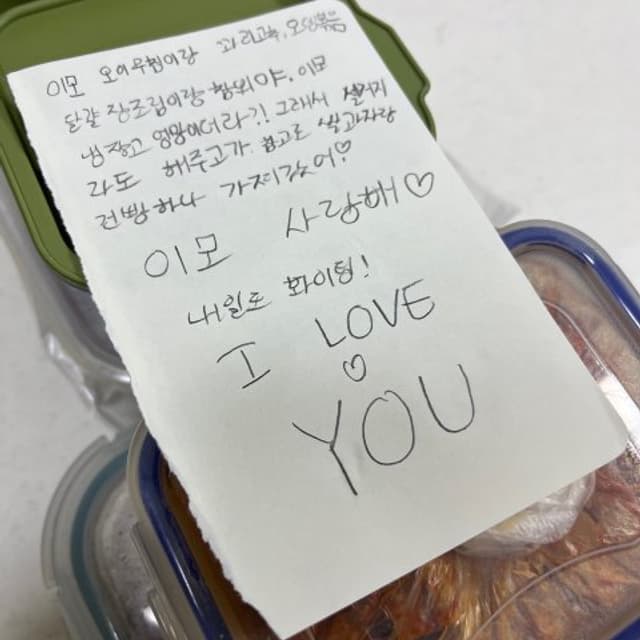 이모 오이무침이랑 꽈리고추, 오징어볶음
달걀 장조림이랑 햄버야. 이모
냉장고 엉망이더라?! 그래서 설거지
라도 해주고가 보고로 쌀과자랑
건빵 하나 가져갔어♡
이모 사랑해♡
내일도 화이팅!
I LOVE
♡
YOU